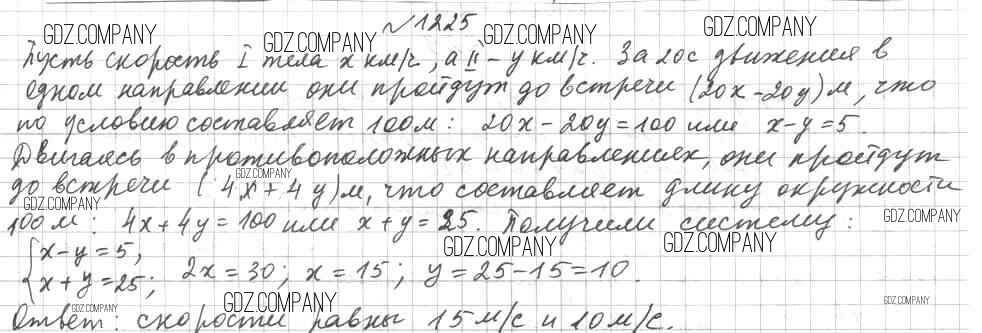 №1225
Пусть скорость I тела x км/ч, а II – y км/ч. За 20с движения в
одном направлении они пройдут до встречи (20x-20y)м, что
по условию составляет 100м: 20x-20y=100 или x-y=5.
Двигаясь в противоположных направлениях, они пройдут
до встречи (4x+4y)м, что составляет длину окружности
100м: 4x+4y=100 или x+y=25. Получим систему:
{x-y=5,
{x+y=25; 2x=30; x=15; y=25-15=10.
Ответ: скорости равны 15м/с и 10м/с.
GDZ.COMPANY
GDZ.COMPANY
GDZ.COMPANY
GDZ.COMPANY
GDZ.COMPANY
GDZ.COMPANY
GDZ.COMPANY
GDZ.COMPANY
GDZ.COMPANY
GDZ.COMPANY
GDZ.COMPANY
GDZ.COMPANY